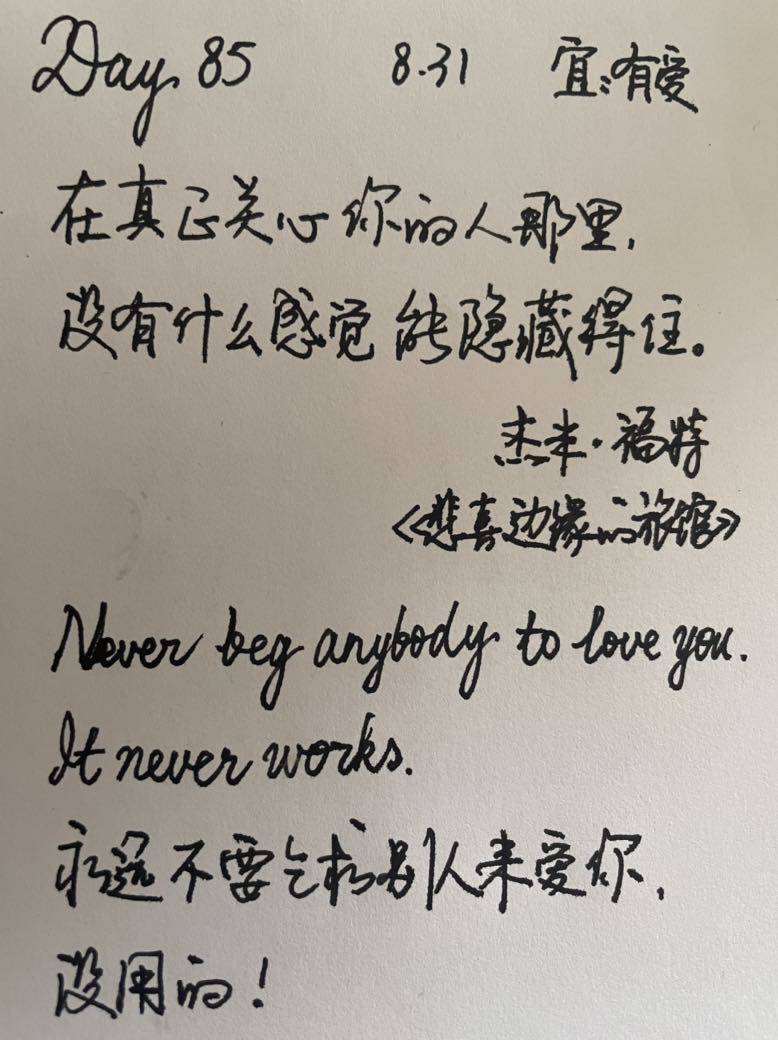 Day 85 8.31 宜:有爱
在真正关心你的人那里,
没有什么感觉能隐藏得住。
杰米·福特
《悲喜边缘的旅馆》
Never beg anybody to love you.
It never works.
永远不要乞求别人来爱你,
没用的!